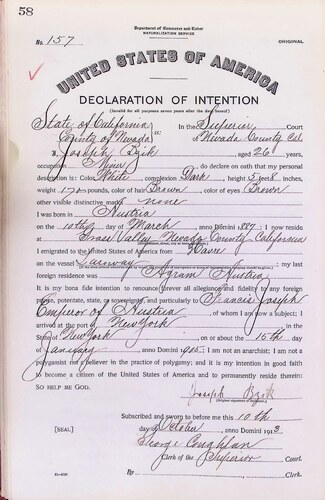 58
Department of Commerce and Labor
NATURALIZATION SERVICE
No. 157
ORIGINAL
UNITED STATES OF AMERICA
DECLARATION OF INTENTION
(Invalid for all purposes seven years after the date hereof)
State of California
County of Nevada ss:
In the Superior Court
of Nevada County Cal.
I, Joseph Brik, aged 26 years,
occupation Miner, do declare on oath that my personal
description is: Color White, complexion Dark, height 5 feet 8 inches,
weight 170 pounds, color of hair Brown, color of eyes Brown
other visible distinctive marks none
I was born in Austria
on the 10th day of March, anno Domini 1887; I now reside
at Grass Valley Nevada County, California
I emigrated to the United States of America from Havre
on the vessel; my last
foreign residence was Agram Austria
It is my bona fide intention to renounce forever all allegiance and fidelity to any foreign
prince, potentate, state, or sovereignty, and particularly to Francis Joseph
Emperor of Austria, of whom I am now a subject; I
arrived at the port of New York, in the
State of New York on or about the 15th day
of January, anno Domini 1905; I am not an anarchist; I am not a
polygamist nor a believer in the practice of polygamy; and it is my intention in good faith
to become a citizen of the United States of America and to permanently reside therein:
SO HELP ME GOD.
Joseph Brik
Subscribed and sworn to before me this 10th
[SEAL] day of October, anno Domini 1913
George Coughlan
Clerk of the Superior Court.
By, Clerk.